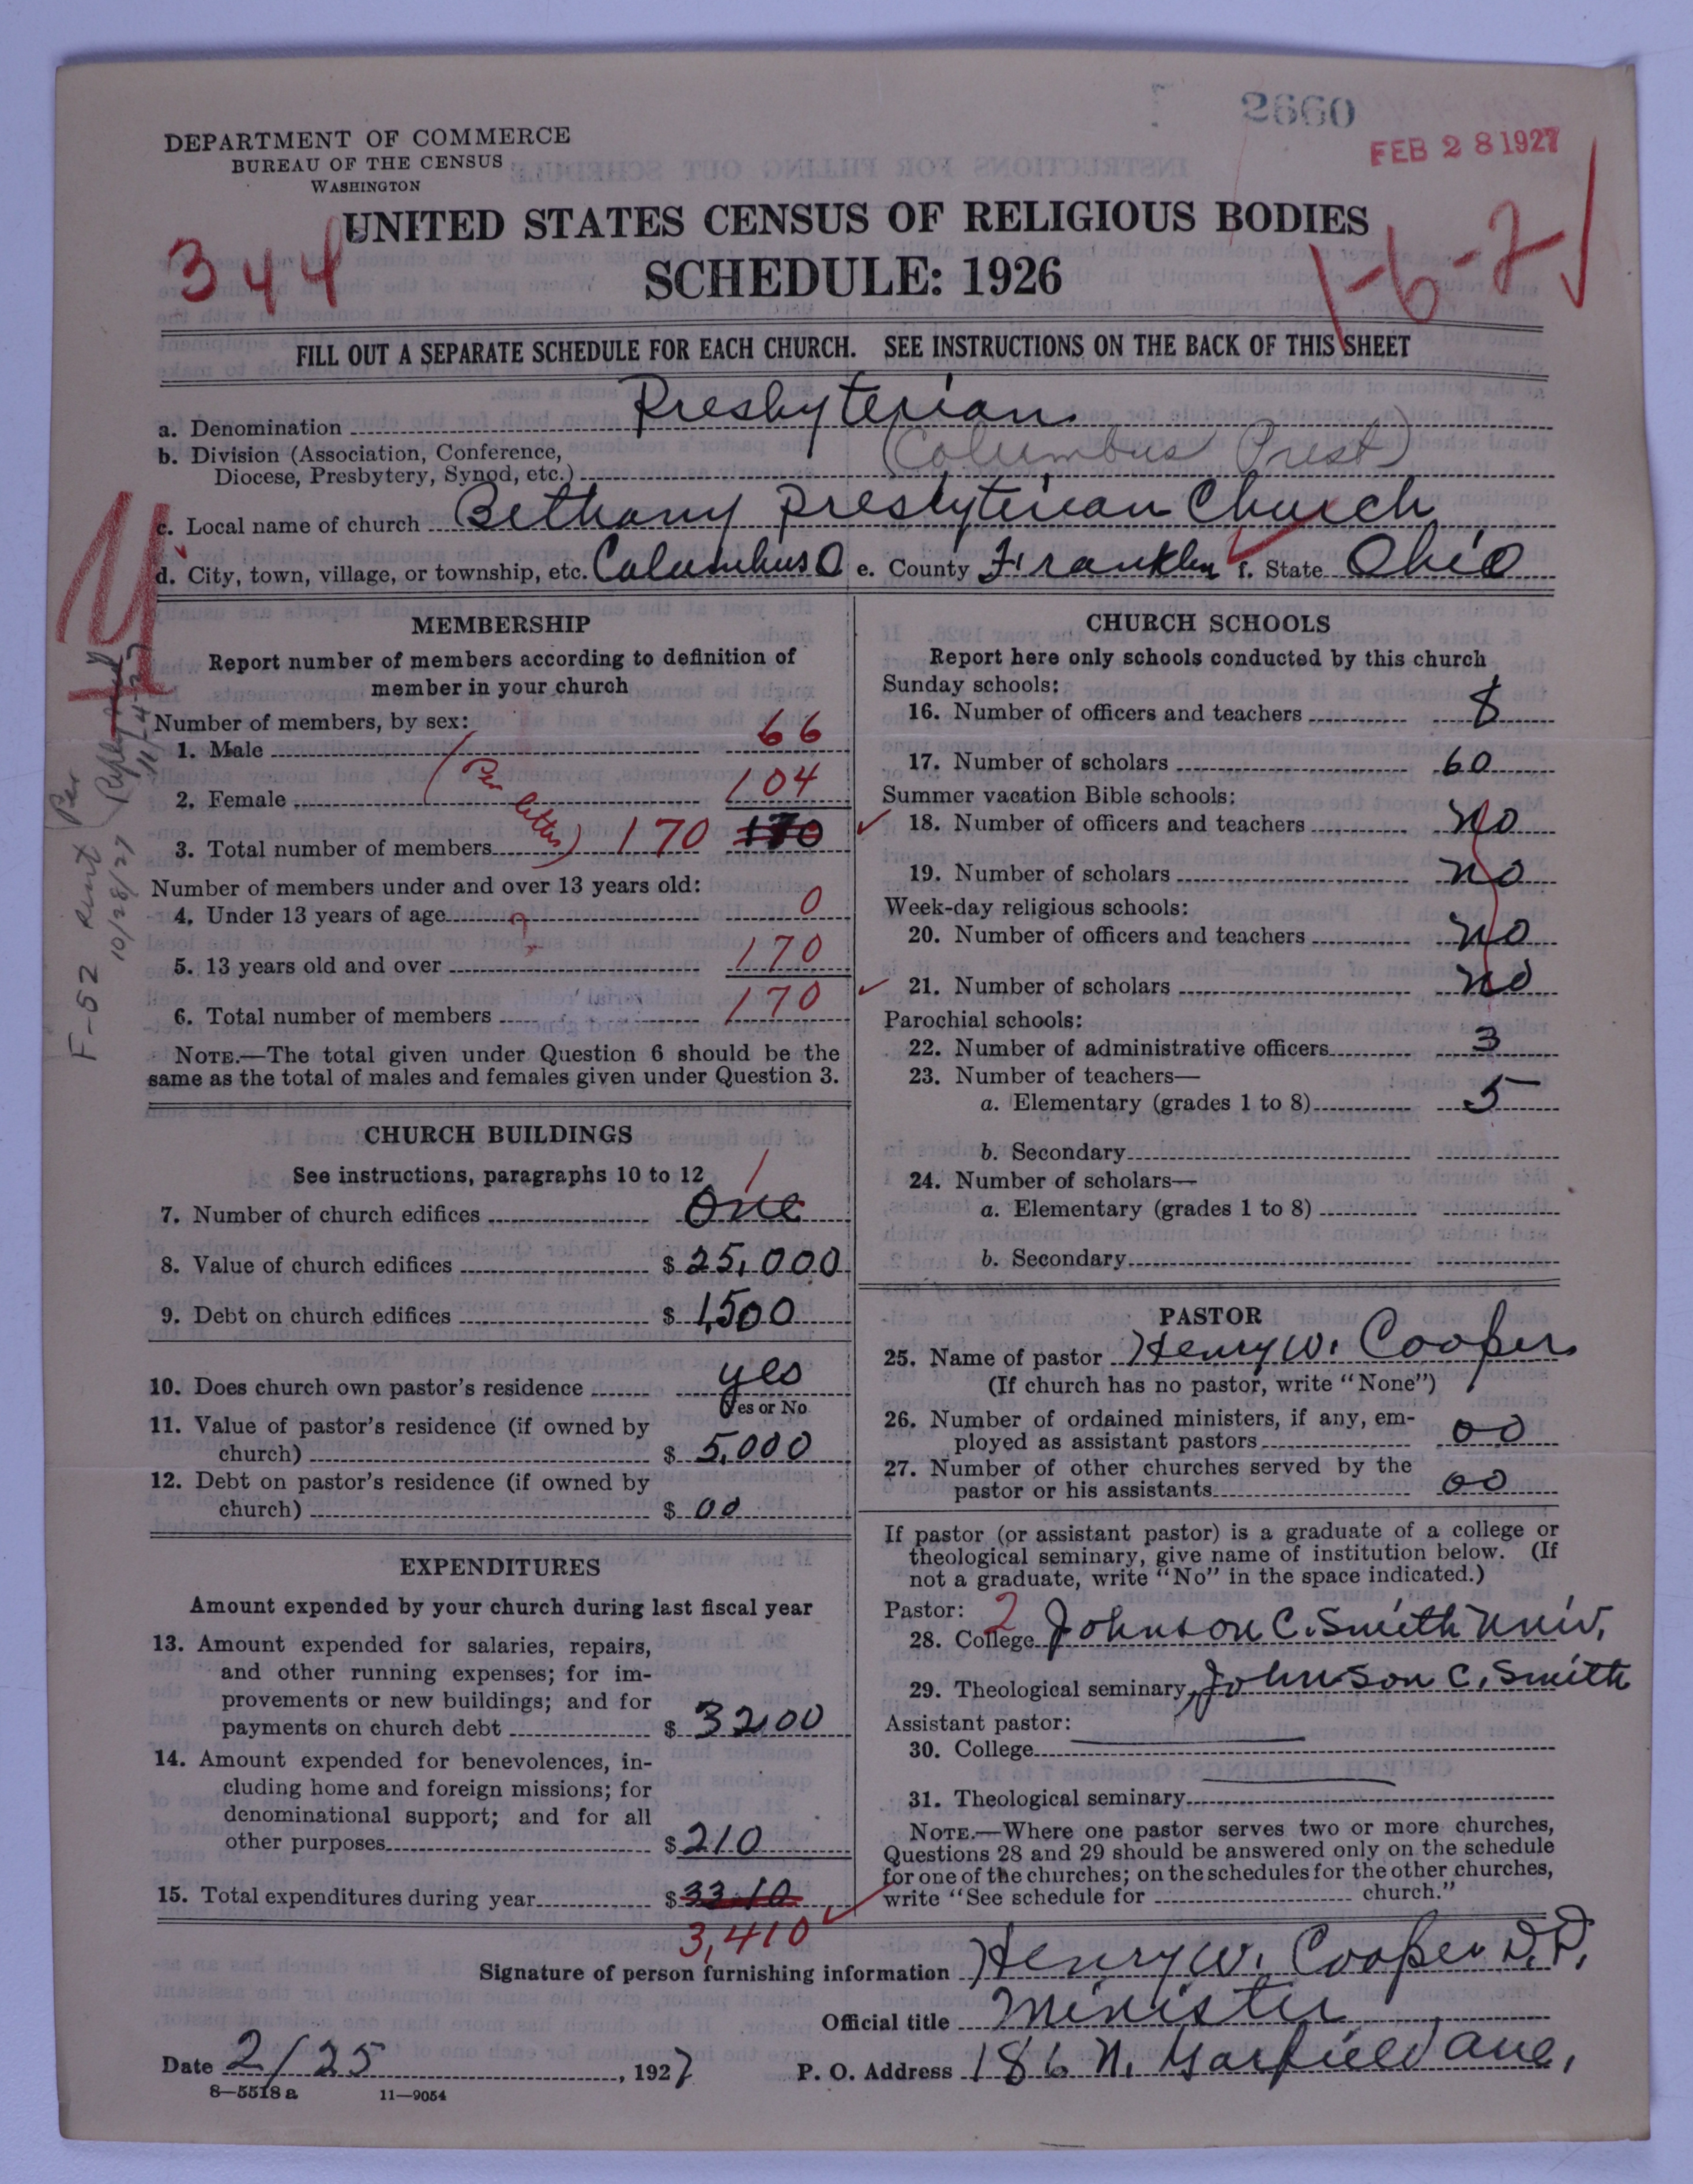 2660
FEB 28 1927
DEPARTMENT OF COMMERCE
BUREAU OF THE CENSUS
WASHINGTON
UNITED STATES CENSUS OF RELIGIOUS BODIES
SCHEDULE: 1926
344
1-6-2
FILL OUT A SEPARATE SCHEDULE FOR EACH CHURCH. SEE INSTRUCTIONS ON THE BACK OF THIS SHEET
a. Denomination Presbyterian
b. Division (Association, Conference,
Diocese, Presbytery, Synod, etc.) (Columbus Prest)
c. Local name of church Bethany Presbyterian Church
d. City, town, village, or township, etc. Columbus O e. County Franklin f. State Ohio
F-52 sent 10/28/27
(Per Reply
11-4-27)
MEMBERSHIP
Report number of members according to definition of
member in your church
Number of members, by sex:
1. Male 66
2. Female (Per letter) 104
3. Total number of members 170 170
Number of members under and over 13 years old:
4. Under 13 years of age ? 0
5. 13 years old and over 170
6. Total number of members 170
NOTE.—The total given under Question 6 should be the
same as the total of males and females given under Question 3.
CHURCH BUILDINGS
See instructions, paragraphs 10 to 12
7. Number of church edifices One 1
8. Value of church edifices $ 25,000
9. Debt on church edifices $ 1,500
10. Does church own pastor's residence yes
Yes or No
11. Value of pastor's residence (if owned by
church) $ 5,000
12. Debt on pastor's residence (if owned by
church) $ 00
EXPENDITURES
Amount expended by your church during last fiscal year
13. Amount expended for salaries, repairs,
and other running expenses; for im-
provements or new buildings; and for
payments on church debt $ 3200
14. Amount expended for benevolences, in-
cluding home and foreign missions; for
denominational support; and for all
other purposes $ 210
15. Total expenditures during year $ 3310
3,410
CHURCH SCHOOLS
Report here only schools conducted by this church
Sunday schools:
16. Number of officers and teachers 8
17. Number of scholars 60
Summer vacation Bible schools:
18. Number of officers and teachers no
19. Number of scholars no
Week-day religious schools:
20. Number of officers and teachers no
21. Number of scholars no
Parochial schools:
22. Number of administrative officers 3
23. Number of teachers—
a. Elementary (grades 1 to 8) 5
b. Secondary
24. Number of scholars—
a. Elementary (grades 1 to 8)
b. Secondary
PASTOR
25. Name of pastor Henry W. Cooper
(If church has no pastor, write "None")
26. Number of ordained ministers, if any, em-
ployed as assistant pastors 00
27. Number of other churches served by the
pastor or his assistants 00
If pastor (or assistant pastor) is a graduate of a college or
theological seminary, give name of institution below. (If
not a graduate, write "No" in the space indicated.)
Pastor: 2
28. College Johnson C. Smith Univ.
29. Theological seminary Johnson C. Smith
Assistant pastor:
30. College
31. Theological seminary
NOTE.—Where one pastor serves two or more churches,
Questions 28 and 29 should be answered only on the schedule
for one of the churches; on the schedules for the other churches,
write "See schedule for church."
Signature of person furnishing information Henry W. Cooper D.D.
Official title Minister
Date 2/25, 1927 P. O. Address 186 N. Garfield ave.
8—5518 a 11—9054